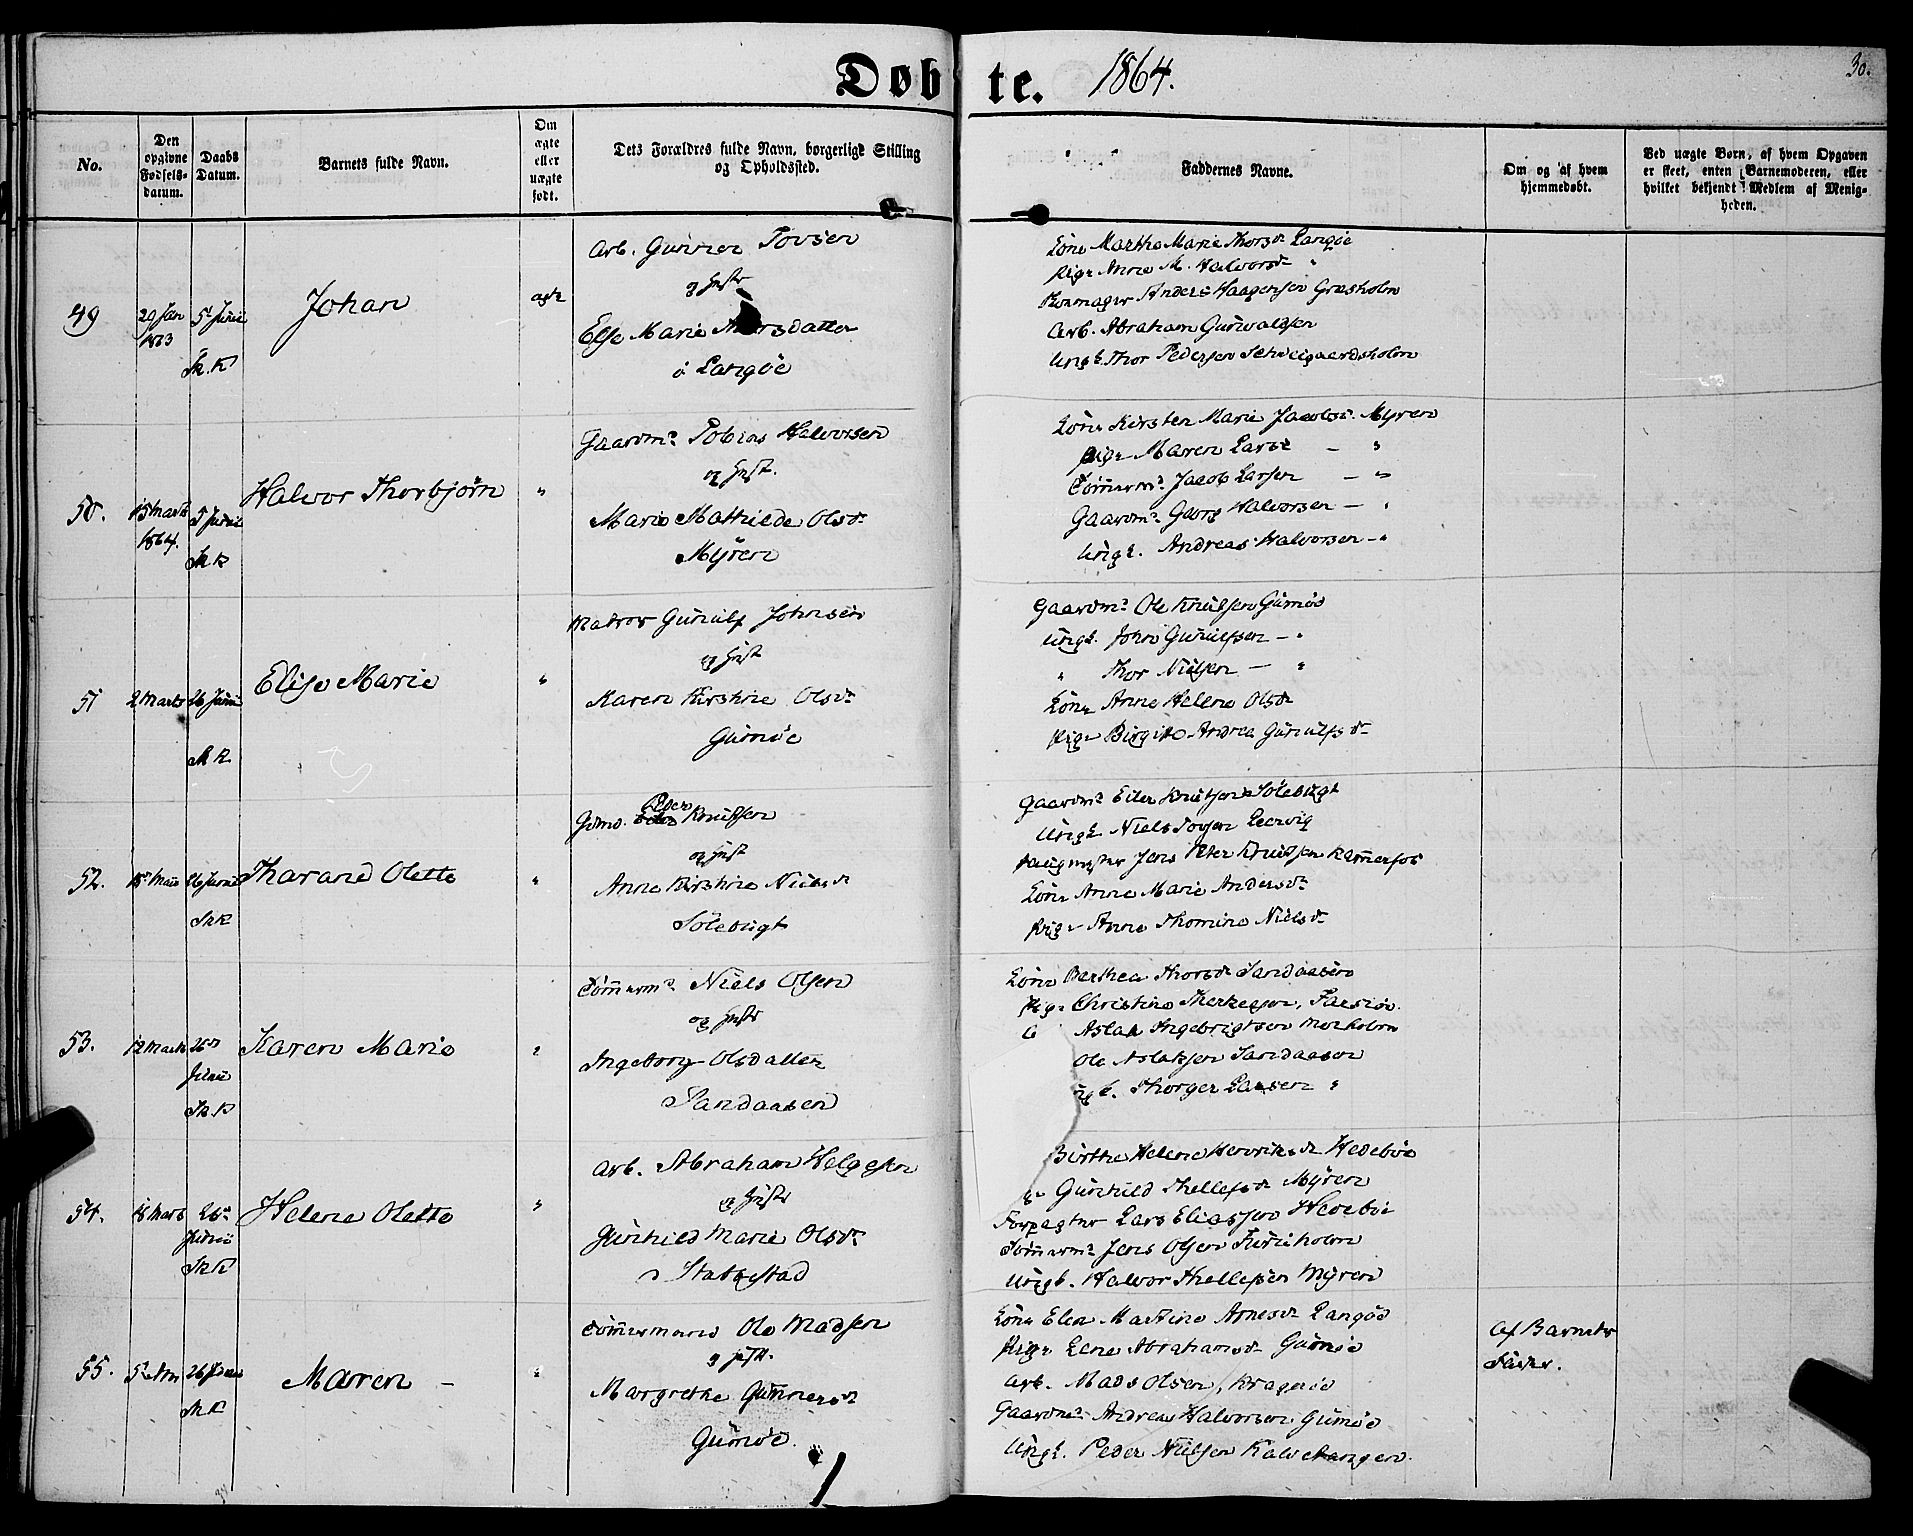 Døbte. 1864.
30.
No.
Den opgivne Fødselsdatum.
Daabs Datum.
Barnets fulde Navn.
Om ægte eller uægte født.
Dets Forældres fulde Navn, borgerlige Stilling og Opholdssted.
Faddernes Navne.
Om og af hvem hjemmedøbt.
Ved uægte Børn, af hvem Opgaven er skeet, enten Barnemoderen, eller hvilket bekjendt Medlem af Menigheden.
49
29 Jan 1863
5t Junii
Sk. K
Johan
ægte
Arb. Gunner Tovsen
og Hustr
Else Marie
Langøe
Kone Martha Marie Thorsd. Langöe
Pige Anne M. Halvorsd "
Anders Haagensen Græsholm
Arb. Abraham Gunvaldsen
Ungk. Thor Pedersen Schveigaardsholm
50.
15 Marts 1864.
5 Junii
Sk K
Halvor Thorbjørn
"
Gaardmd Tobias Halvorsen
og Hust.
Marie Mathilde Olsdr
Myren
Kone Kirsten Marie Jacobsd. Myren
Pige Maren Larsd — "
Tömmermd Jacob Larsen — "
Gaardmd Georg Halvorsen — "
Ungk. Andreas Halvorsen — "
51
2 Marts
26 Junii
Sk K
Elise Marie
"
Matros Gunulf Johnsen
og Hust
Karen Kirstine Olsdr
Gumöe
Gaardmd Ole Knudsen Gumöe
Ungk. John Gunulfsen — "
" Thor Nielsen — "
Kone Anne Helene Olsd
Pige Birgitte Andrea Gunulfsdr
52.
26 Junii
Sk K
Tharand Olette
"
Gmd. Peder Knudsen
og Hust
Anne Kirstine Nielsd
Sölebugt
Gaardmd Eilev Knutsen Sölebugt
Ungk Niels Tovsen Leervig
Jens Peter Knudsen Kammerfos
Kone Anne Marie Andersdr
Pige Anne Thomine Nielsdr
53.
12 Marts
26de Junii
Sk K
Karen Marie
"
Tömmermd Niels Olsen
og Hustr
Ingeborg Olsdatter
Sandaasen
Kone Berthea Thorsd Sandaasen
Pige Christine
Aslak Ingebrigtsen
Ole Aslaksen Sandaasen
Thorger Larsen "
54.
18 Marts
26de Junii
Sk K
Helene Olette
"
Arb. Abraham Helgesen
og Hustr
Gunhild Marie Olsdr
Stabbestad
Birthe Helene Henriksd Hedeböe
Gunhild Thellefsd Myren
Forpagter Lars Eliassen Hedeböe
Tömmermd Jens Olsen Furuholm
Ungk. Halvor Thellefsen Myren
55.
26 Junii
Sk K
Maren —
"
Tömmermand Ole Madsen
og Hust.
Margrethe Gunnersdr
Gumöe.
Kone Elen Martine Arnesd Langöe
Pige Lene Abrahamsd Gumöe
Arb. Mads Olsen, Kragerøe
Gaardmd Andrea Halvorsen Gumöe
Ungk. Peder Nielsen Kalvetangen
Af Barnets
Fader.